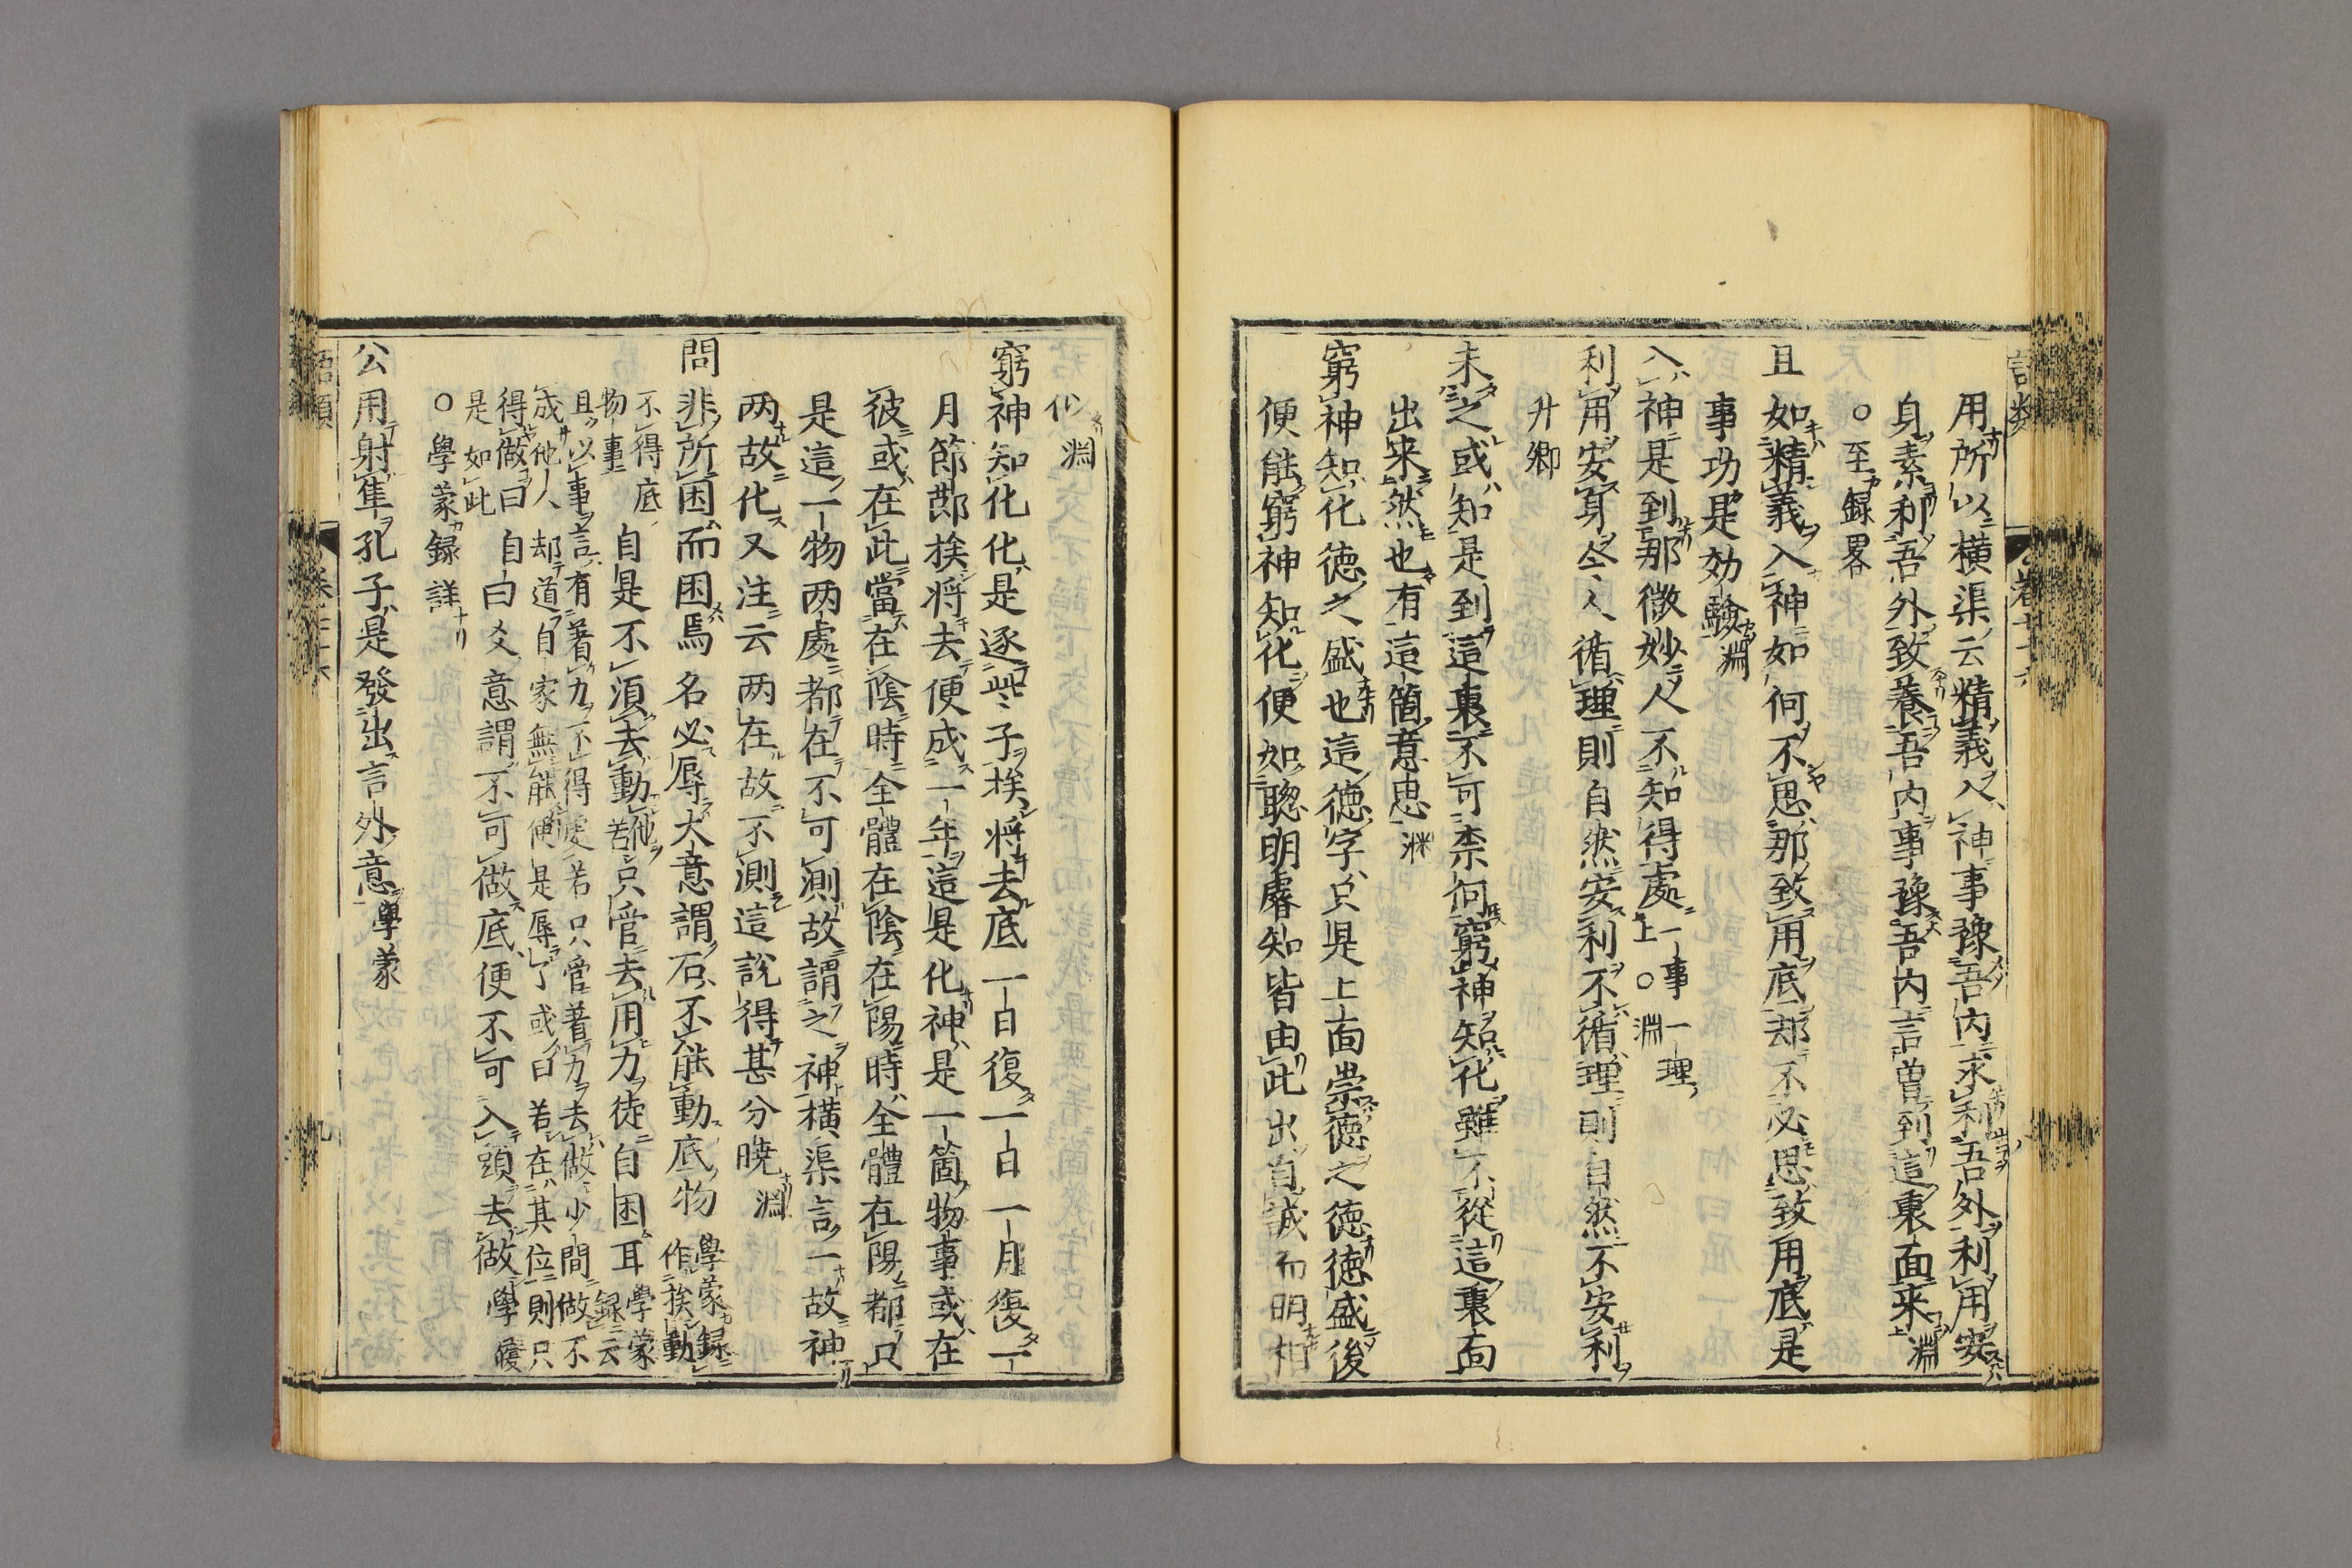 用所以横渠云精義入神事豫吾内求利吾外利用安
身素利吾外致養吾内事豫吾内言曽到這裏面来淵
○至録畧
且如精義入神如何不思那致用底却不必思致用底是
事功是効驗淵
入神是到那微妙人不知得處一事一理上○淵
利用安身今人循理則自然安利不循理則自然不安利
升卿
未之或知是到這裏不可柰何窮神知化雖不從這裏面
出来然也有這箇意思淵
窮神知化徳之盛也這徳字只是上面崇徳之徳徳盛後
便能窮神知化便如聦明睿知皆由此出自誠而明相
似淵
窮神知化化是逐些子挨将去底一日復一日一月復一
月節節挨将去便成一年這是化神是一箇物事或在
彼或在此當在陰時全體在陰在陽時全體在陽都只
是這一物两處都在不可測故謂之神横渠言一故神
两故化又注云两在故不測這說得甚分暁淵
問非所困而困焉名必辱大意謂石不能動底物學蒙録作挨動
不得底物事自是不湏去動他若只管去用力徒自困耳學蒙録云
且以事言有著力不得處若只管著力去做少間做不
成他人却道自家無能便是辱了或曰若在其位則只
得做曰自曰爻意謂不可做底便不可入頭去做學履
是如此
○學蒙録詳
公用射隼孔子是發出言外意學蒙